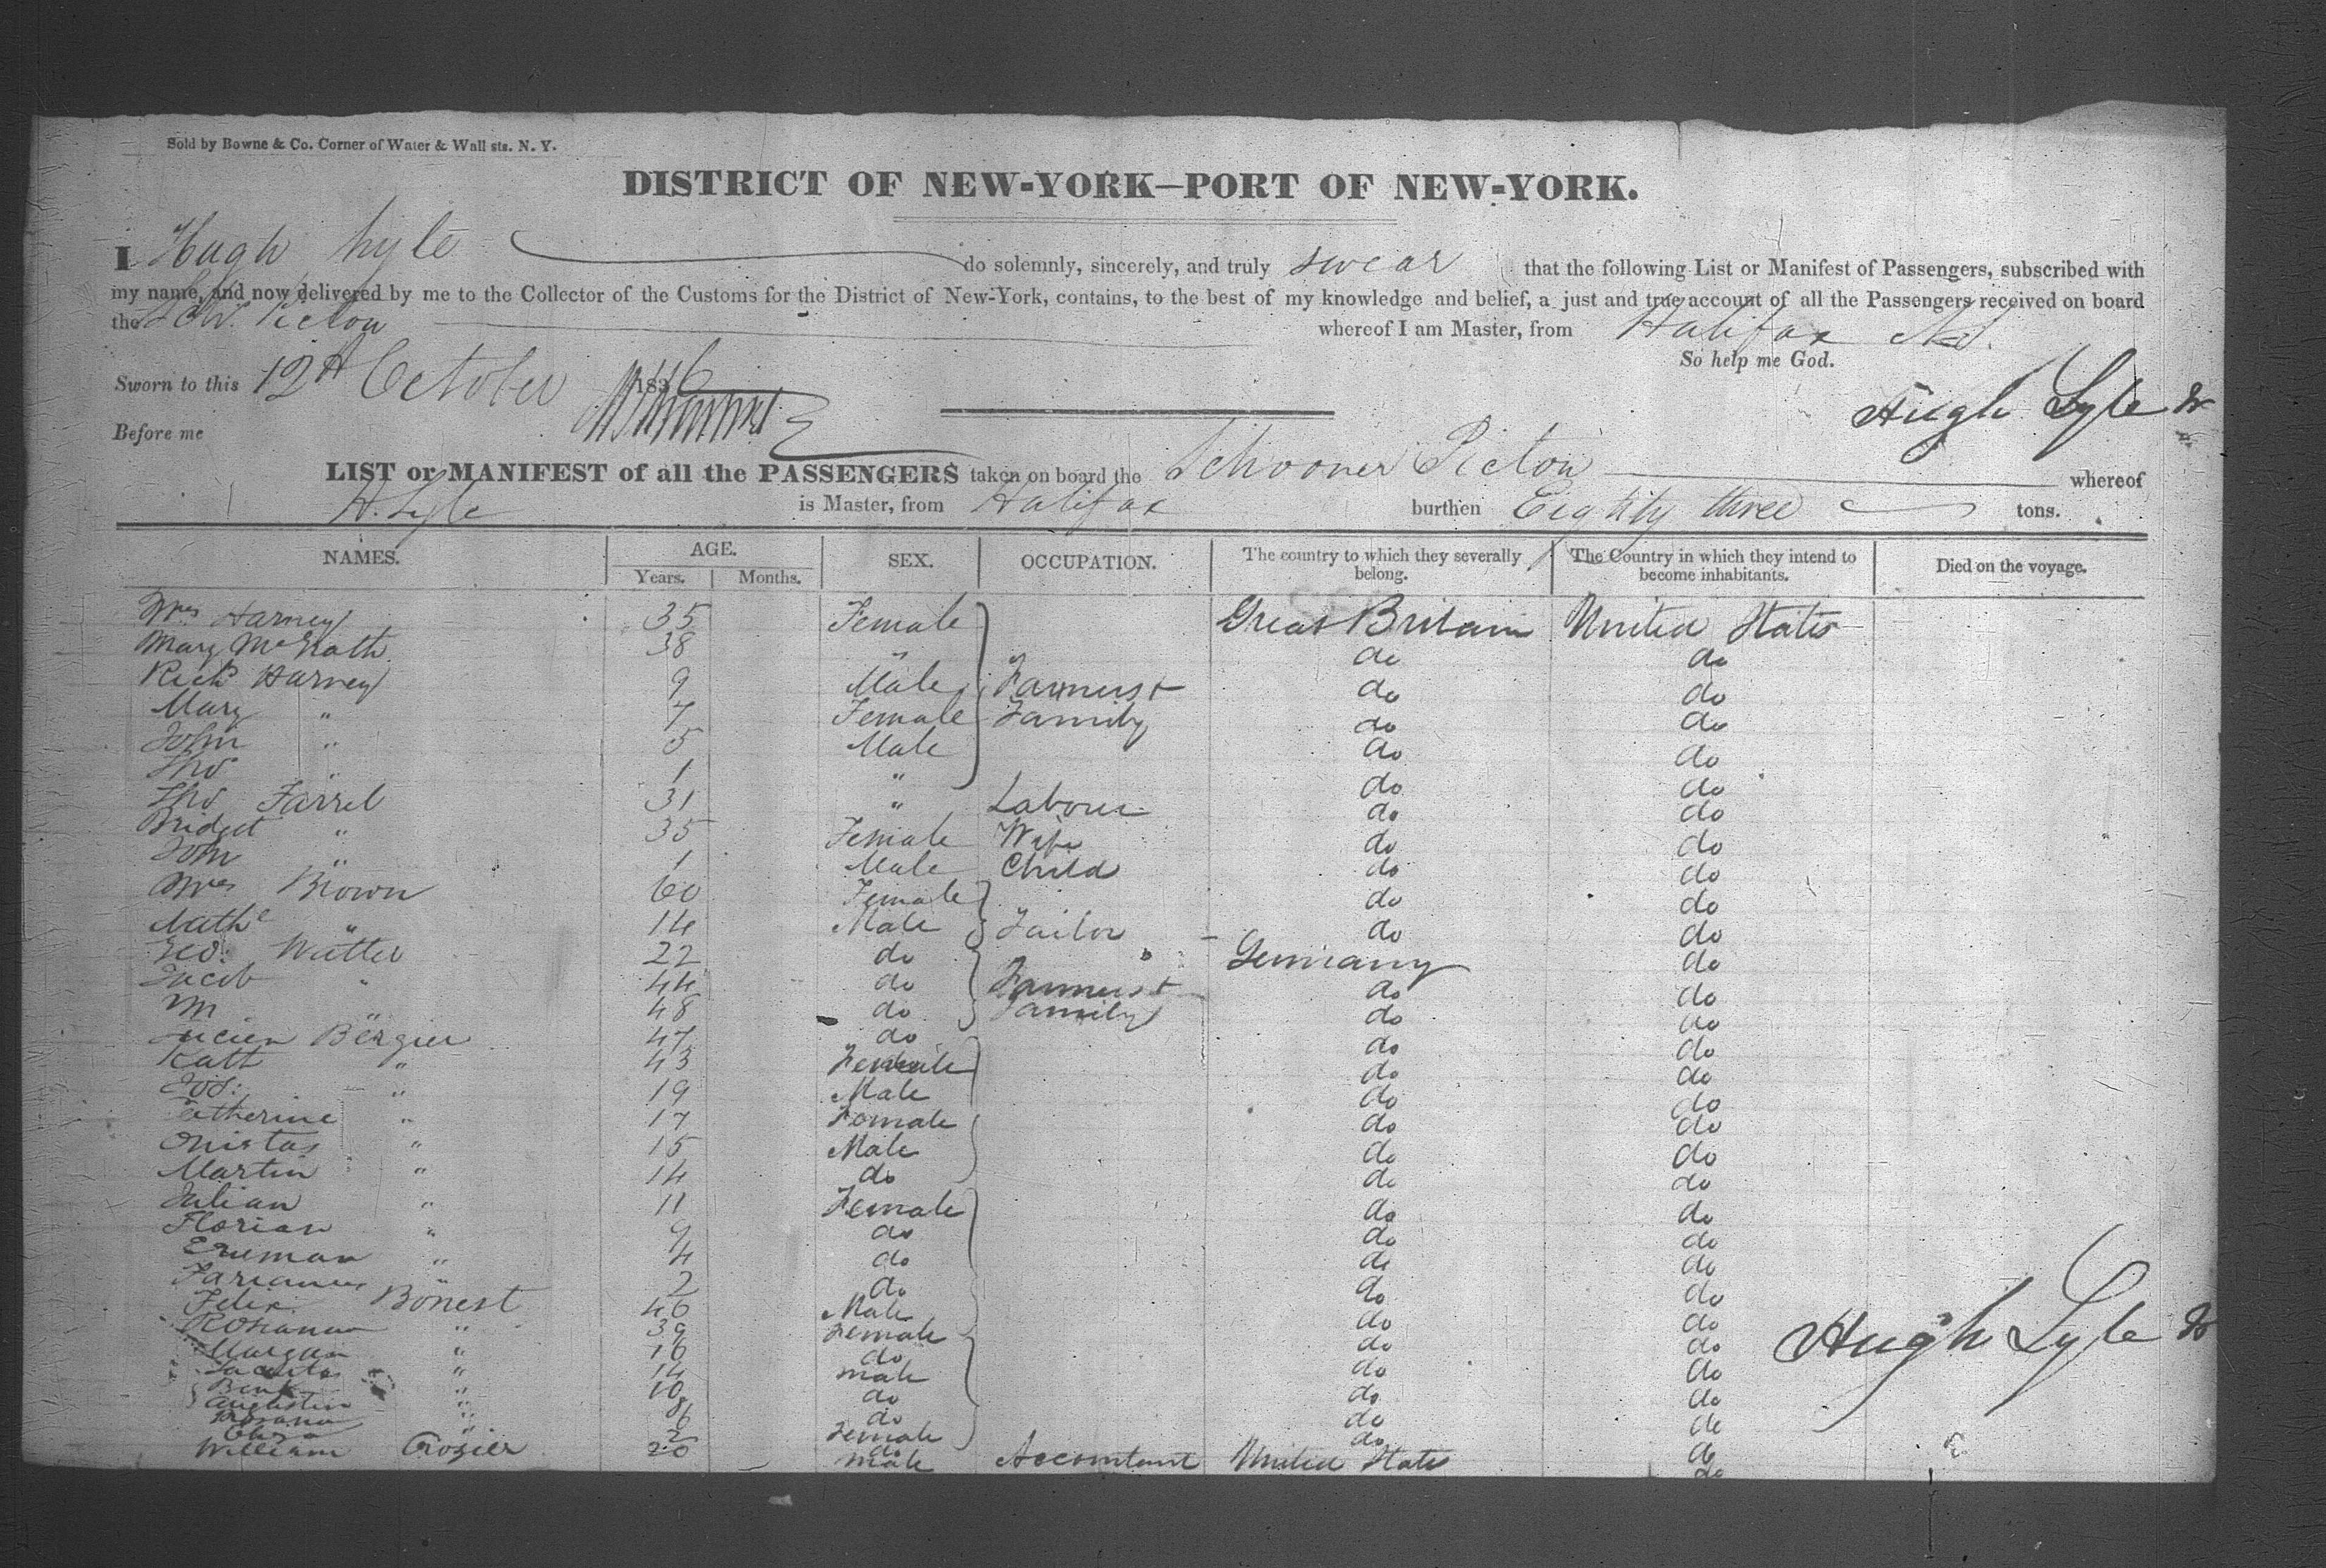 Sold by Bowne & Co. Corner of Water & Wall sts. N. Y.
DISTRICT OF NEW-YORK—PORT OF NEW-YORK.
I Hugh Lyle do solemnly, sincerely, and truly swear that the following List or Manifest of Passengers, subscribed with
my name, and now delivered by me to the Collector of the Customs for the District of New-York, contains, to the best of my knowledge and belief, a just and true account of all the Passengers received on board
the Schr. Picton whereof I am Master, from Halifax N.S.
So help me God.
Sworn to this 12th October 1846
Hugh Lyle Jr
Before me
LIST or MANIFEST of all the PASSENGERS taken on board the Schooner Picton whereof
H. Lyle is Master, from Halifax burthen Eighty three tons.
NAMES. AGE. SEX. OCCUPATION. The country to which they severally belong. The Country in which they intend to become inhabitants. Died on the voyage.
Years. Months.
Mrs Harney 35 Female Great Britain United States
Mary McGrath 38 " do do
Richd Harney 9 Male Farmers + do do
Mary " 7 Female Family do do
John " 5 Male do do
Tho " 1 " do do
Tho Farrel 31 " Labourer do do
Bridget " 35 Female Wife do do
Tom " 1 Male Child do do
Mrs Brown 60 Female do do
" 14 Male Tailor do do
Geo. Watter 22 do Germany do
Jacob " 44 do Farmers + do do
M " 48 do Family do do
Lucien Bergier 47 do do do
Katt " 43 Female do do
Jos: " 19 Male do do
Catherine " 17 Female do do
" 15 Male do do
Martin " 14 do do do
Julian " 11 Female do do
Florian " 9 do do do
" 4 do do do
2 do do do
Felix Bonest 46 Male do do
Rosanna " 39 Female do do
" 16 do do do
" 14 male do do
" 10 do do do
Augustin " 8 do do do
Rosana " 6 Female do do
" 2 do do
William Crozier 20 male Accountant United States do
Hugh Lyle Jr